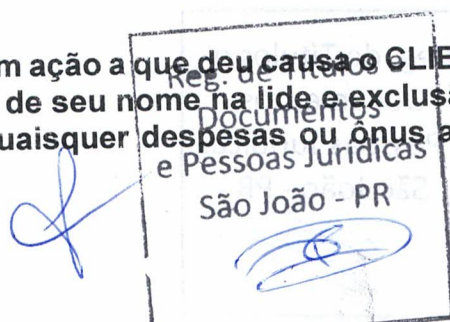 m ação a que deu causa o CLIE
de seu nome na lide e exclusã
uaisquer despesas ou ônus a
Reg. de Títulos e
Documentos
e Pessoas Jurídicas
São João - PR